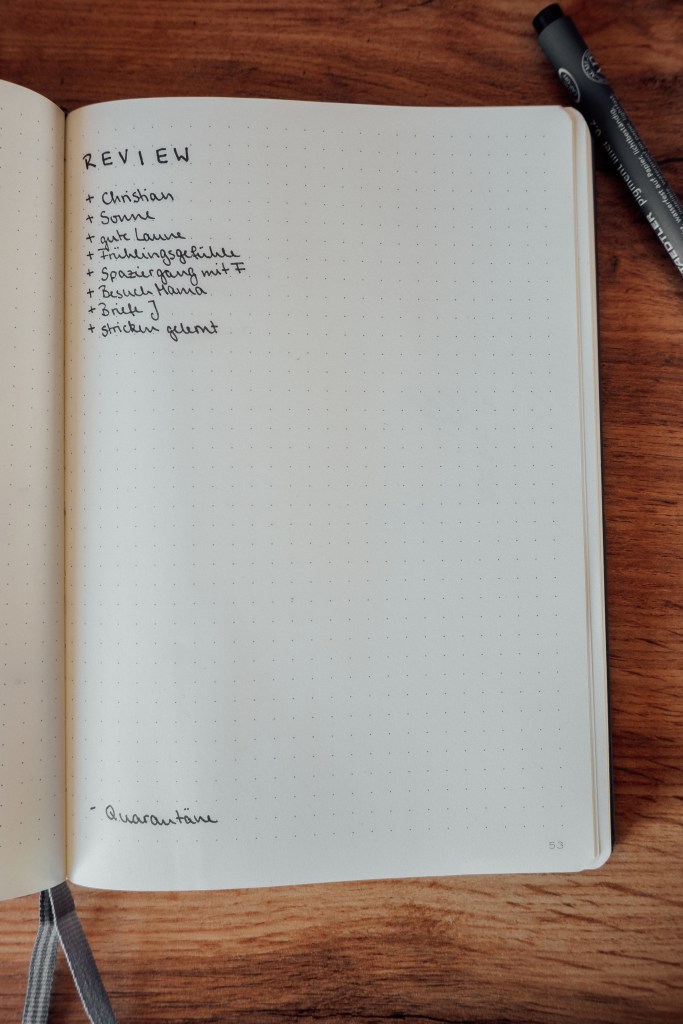 REVIEW
+ Christian
+ Sonne
+ gute Laune
+ Frühlingsgefühle
+ Spaziergang mit F
+ Besuch Mama
+ Briefe J
+ stricken gelernt
- Quarantäne
53
STAEDTLER pigment liner 0.2